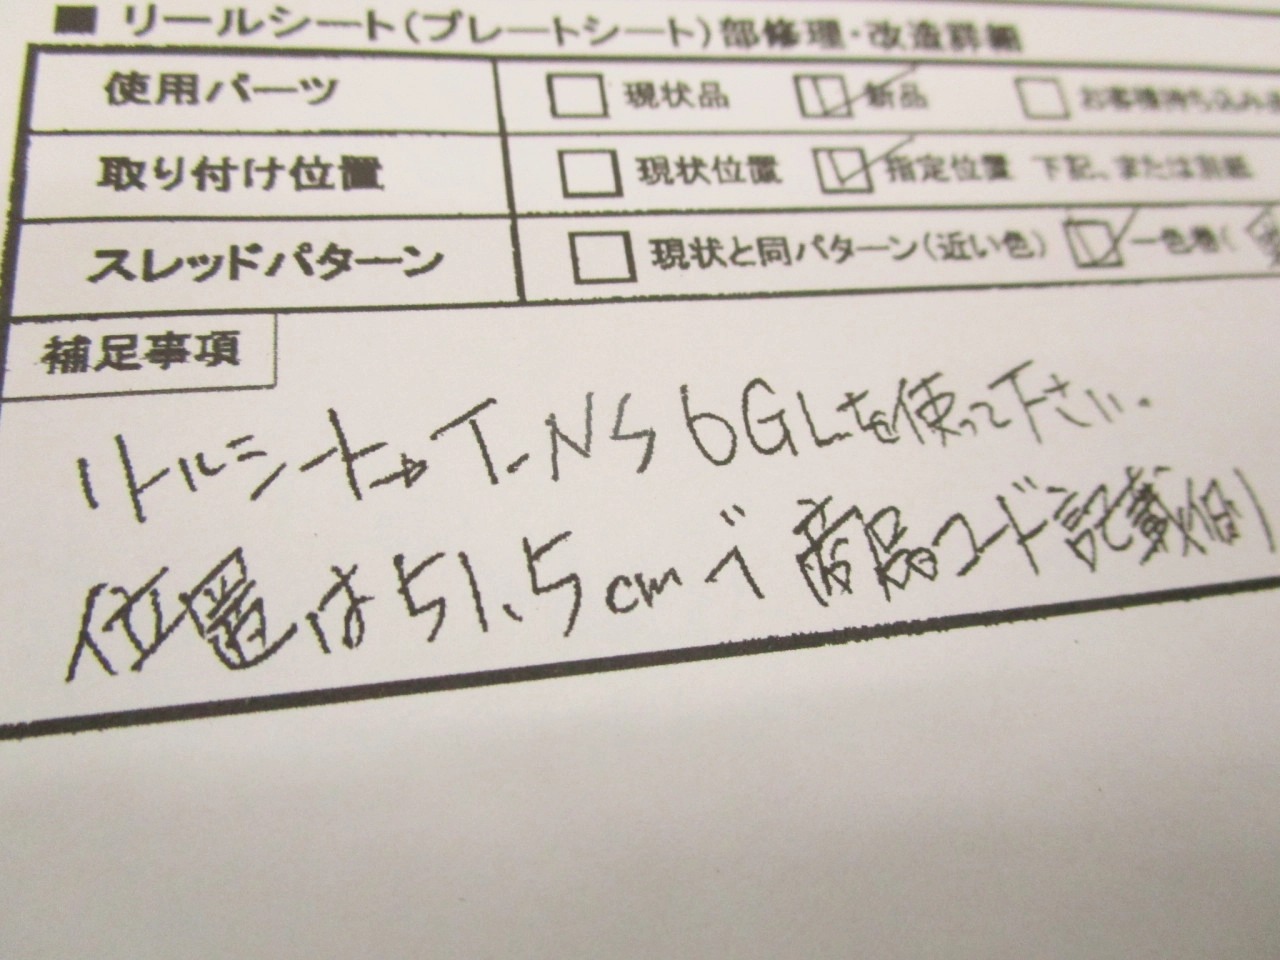 ■ リールシート(プレートシート)部修理・改造詳細
使用パーツ □ 現状品 ☑ 新品 □ お客様持ち込み
取り付け位置 □ 現状位置 ☑ 指定位置 下記、または別紙
スレッドパターン □ 現状と同パターン(近い色) ☑ 一色巻(
補足事項
リールシート→T-NS6GLを使って下さい.
位置は51.5cmで商品コード記載側